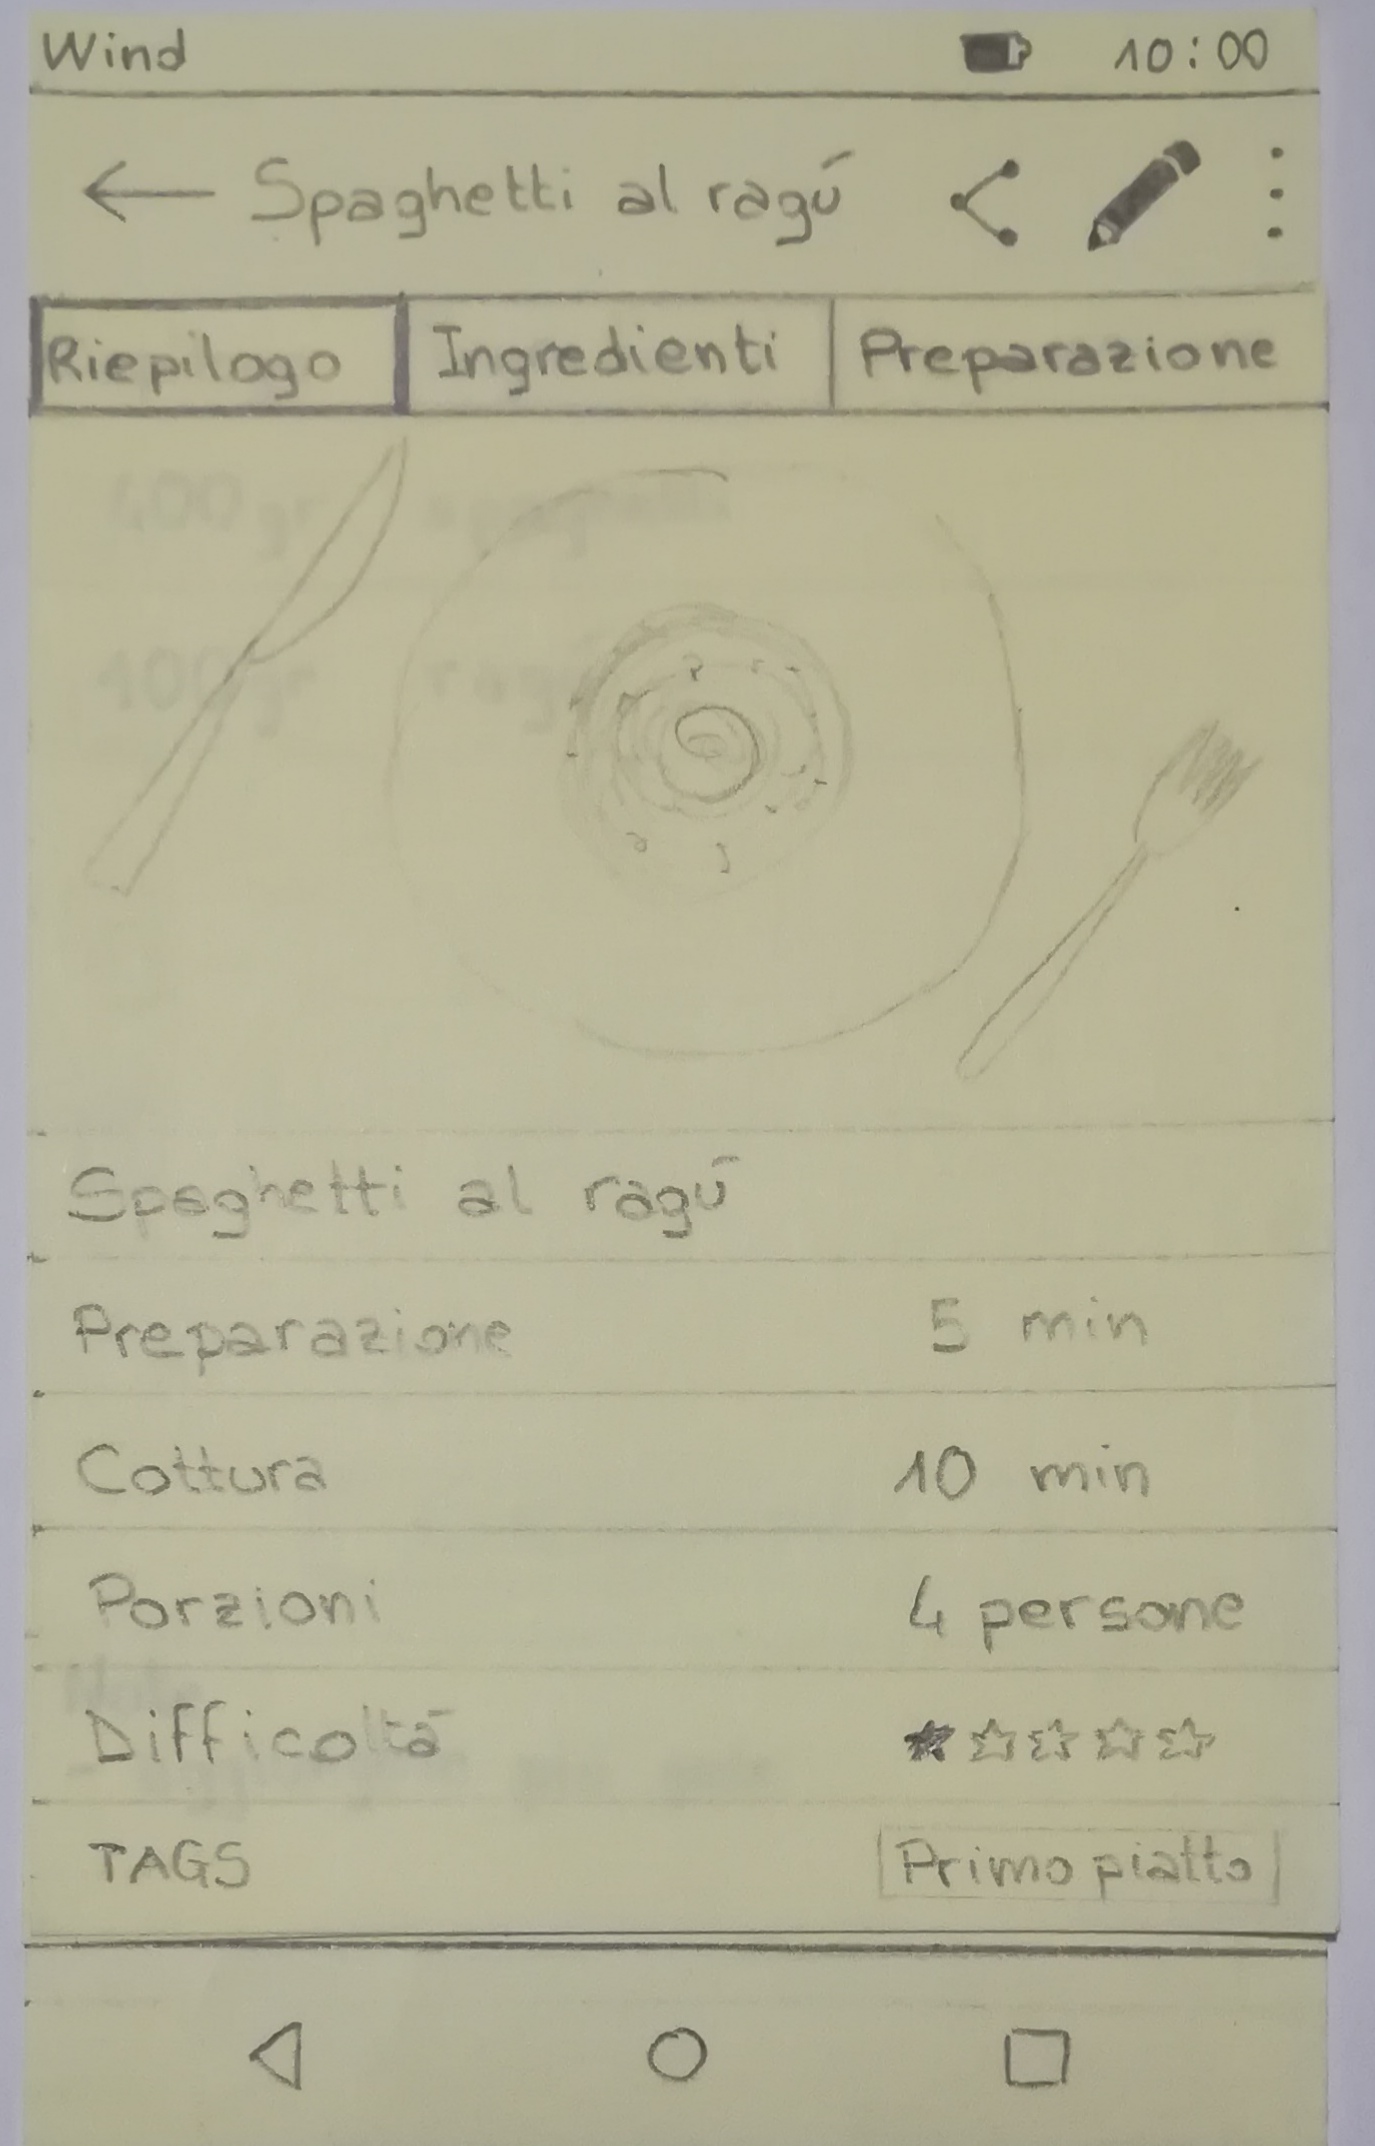 Wind 10:00
Spaghetti al ragú
Riepilogo Ingredienti Preparazione
400 gr spaghetti
400 gr rag
Spaghetti al ragú
Preparazione 5 min
Cottura 10 min
Porzioni 4 persone
Difficoltá
TAGS Primo piatto